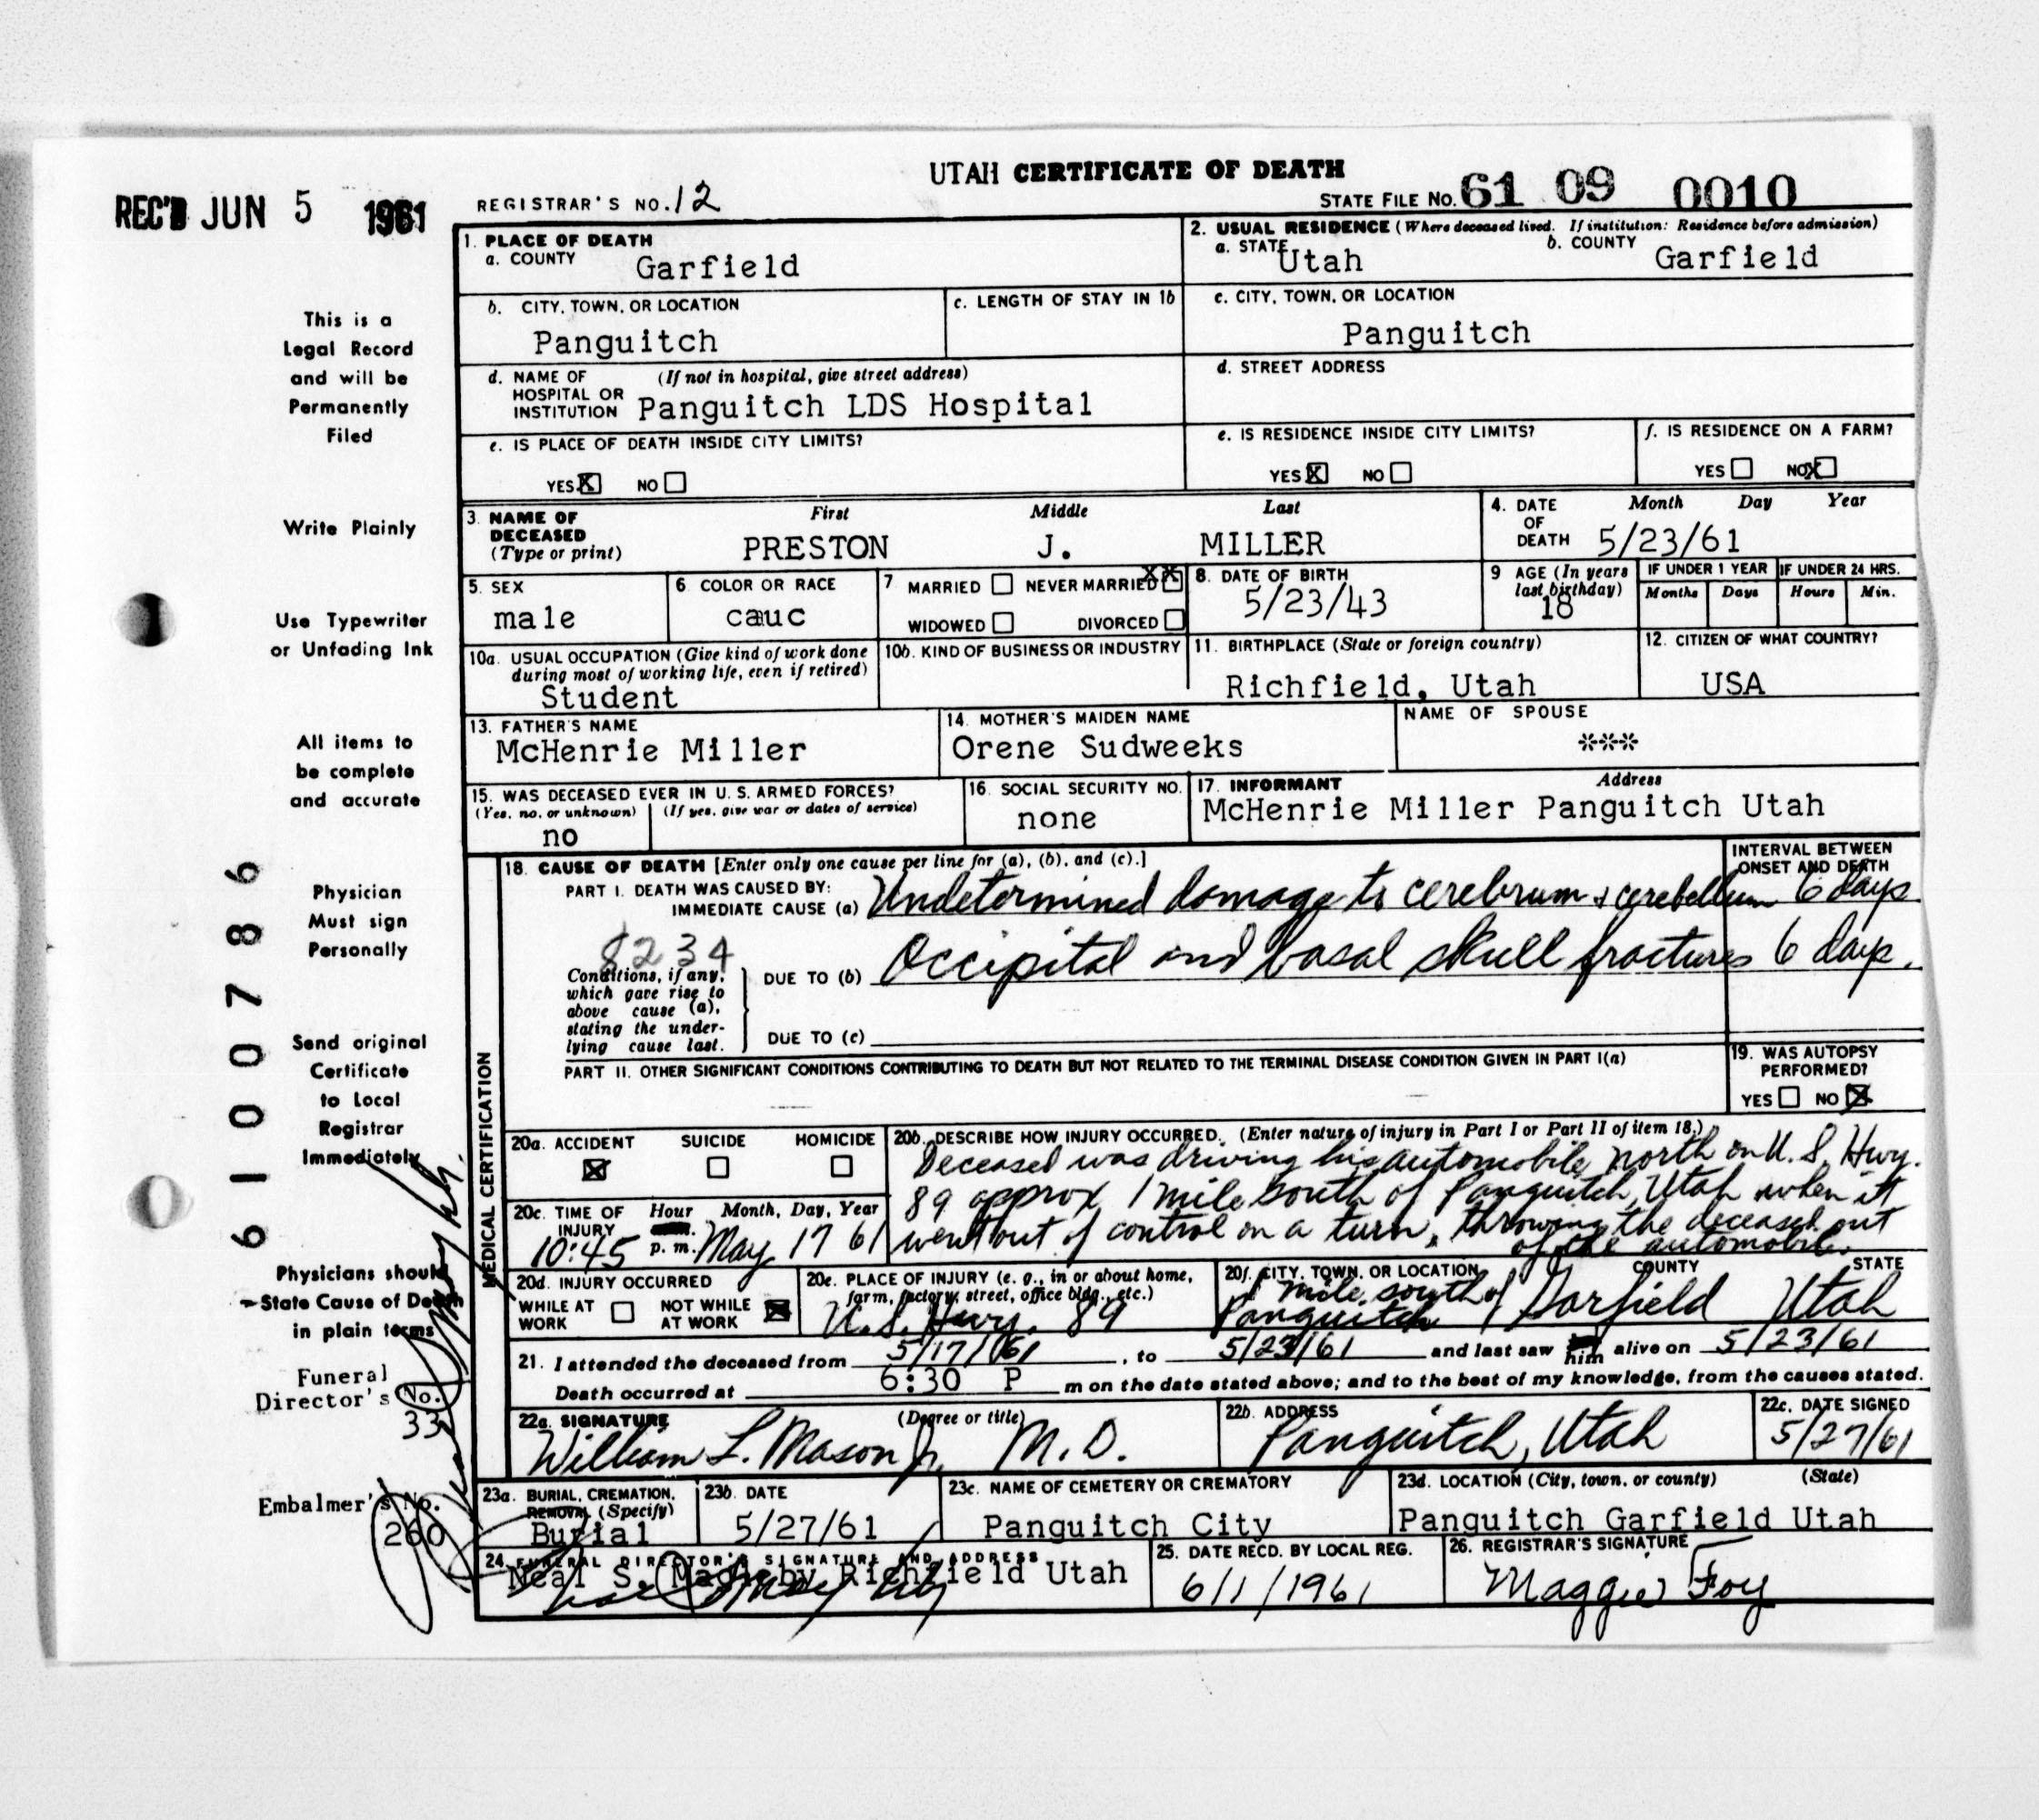 UTAH CERTIFICATE OF DEATH
REC'D JUN 5 1961
REGISTRAR'S NO. 12
STATE FILE NO. 61 09 0010
1. PLACE OF DEATH
a. COUNTY Garfield
2. USUAL RESIDENCE (Where deceased lived. If institution: Residence before admission)
a. STATE Utah b. COUNTY Garfield
b. CITY, TOWN, OR LOCATION Panguitch
c. LENGTH OF STAY IN 1b
c. CITY, TOWN, OR LOCATION Panguitch
d. NAME OF HOSPITAL OR INSTITUTION (If not in hospital, give street address) Panguitch LDS Hospital
d. STREET ADDRESS
e. IS PLACE OF DEATH INSIDE CITY LIMITS?
YES X NO
e. IS RESIDENCE INSIDE CITY LIMITS?
YES X NO
f. IS RESIDENCE ON A FARM?
YES NO X
3. NAME OF DECEASED (Type or print)
First Middle Last
PRESTON J. MILLER
4. DATE OF DEATH Month Day Year
5/23/61
5. SEX male
6. COLOR OR RACE cauc
7 MARRIED NEVER MARRIED XX
WIDOWED DIVORCED
8. DATE OF BIRTH 5/23/43
9 AGE (In years last birthday) 18
IF UNDER 1 YEAR Months Days
IF UNDER 24 HRS. Hours Min.
10a. USUAL OCCUPATION (Give kind of work done during most of working life, even if retired)
Student
10b. KIND OF BUSINESS OR INDUSTRY
11. BIRTHPLACE (State or foreign country)
Richfield, Utah
12. CITIZEN OF WHAT COUNTRY?
USA
13. FATHER'S NAME
McHenrie Miller
14. MOTHER'S MAIDEN NAME
Orene Sudweeks
NAME OF SPOUSE
***
15. WAS DECEASED EVER IN U. S. ARMED FORCES?
(Yes, no, or unknown) (If yes, give war or dates of service)
no
16. SOCIAL SECURITY NO.
none
17. INFORMANT Address
McHenrie Miller Panguitch Utah
MEDICAL CERTIFICATION
18. CAUSE OF DEATH [Enter only one cause per line for (a), (b), and (c).]
INTERVAL BETWEEN ONSET AND DEATH
PART I. DEATH WAS CAUSED BY:
IMMEDIATE CAUSE (a) Undetermined damage to cerebrum + cerebellum 6 days
8234
Conditions, if any, which gave rise to above cause (a), stating the underlying cause last.
DUE TO (b) Occipital and basal skull fractures 6 days.
DUE TO (c)
PART II. OTHER SIGNIFICANT CONDITIONS CONTRIBUTING TO DEATH BUT NOT RELATED TO THE TERMINAL DISEASE CONDITION GIVEN IN PART I(a)
19. WAS AUTOPSY PERFORMED?
YES NO X
20a. ACCIDENT X SUICIDE HOMICIDE
20b. DESCRIBE HOW INJURY OCCURRED. (Enter nature of injury in Part I or Part II of item 18.)
Deceased was driving his automobile north on U. S. Hwy.
89 approx 1 mile south of Panguitch, Utah when it
went out of control on a turn, throwing the deceased out
of the automobile.
20c. TIME OF INJURY Hour Month, Day, Year
10:45 p. m. May 17 61
20d. INJURY OCCURRED
WHILE AT WORK NOT WHILE AT WORK X
20e. PLACE OF INJURY (e. g., in or about home, farm, factory, street, office bldg., etc.)
U. S. Hwy. 89
20f. CITY, TOWN, OR LOCATION COUNTY STATE
1 mile south of Panguitch Garfield Utah
21. I attended the deceased from 5/17/61, to 5/23/61 and last saw him alive on 5/23/61
Death occurred at 6:30 P m on the date stated above; and to the best of my knowledge, from the causes stated.
22a. SIGNATURE (Degree or title)
William L. Mason Jr. M. D.
22b. ADDRESS
Panguitch, Utah
22c. DATE SIGNED
5/27/61
23a. BURIAL, CREMATION, REMOVAL (Specify)
Burial
23b. DATE
5/27/61
23c. NAME OF CEMETERY OR CREMATORY
Panguitch City
23d. LOCATION (City, town, or county) (State)
Panguitch Garfield Utah
24. FUNERAL DIRECTOR'S SIGNATURE AND ADDRESS
Neal S. Magleby Richfield Utah
25. DATE RECD. BY LOCAL REG.
6/1/1961
26. REGISTRAR'S SIGNATURE
Maggie Foy
This is a
Legal Record
and will be
Permanently
Filed
Write Plainly
Use Typewriter
or Unfading Ink
All items to
be complete
and accurate
Physician
Must sign
Personally
Send original
Certificate
to Local
Registrar
Immediately
Physicians should
State Cause of Death
in plain terms
Funeral
Director's No.
33
Embalmer's No.
260
6100786